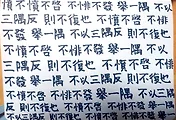 不憤不啓 不憤不啓 不悱
不發 舉一隅 舉一隅 不以
三隅反 則不復也 則不復也
不憤不啓 不悱不發 舉一隅
不以三隅反 則不復也 不憤
不啓 不悱不發 舉一隅 不以三隅
反 則不復也 不憤不啓 不悱不發
舉一隅 不以三隅反 則不復也